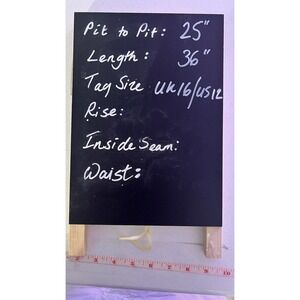 Pit to Pit: 25"
Length: 36"
Tag Size UK16/US12
Rise:
Inside Seam:
Waist: